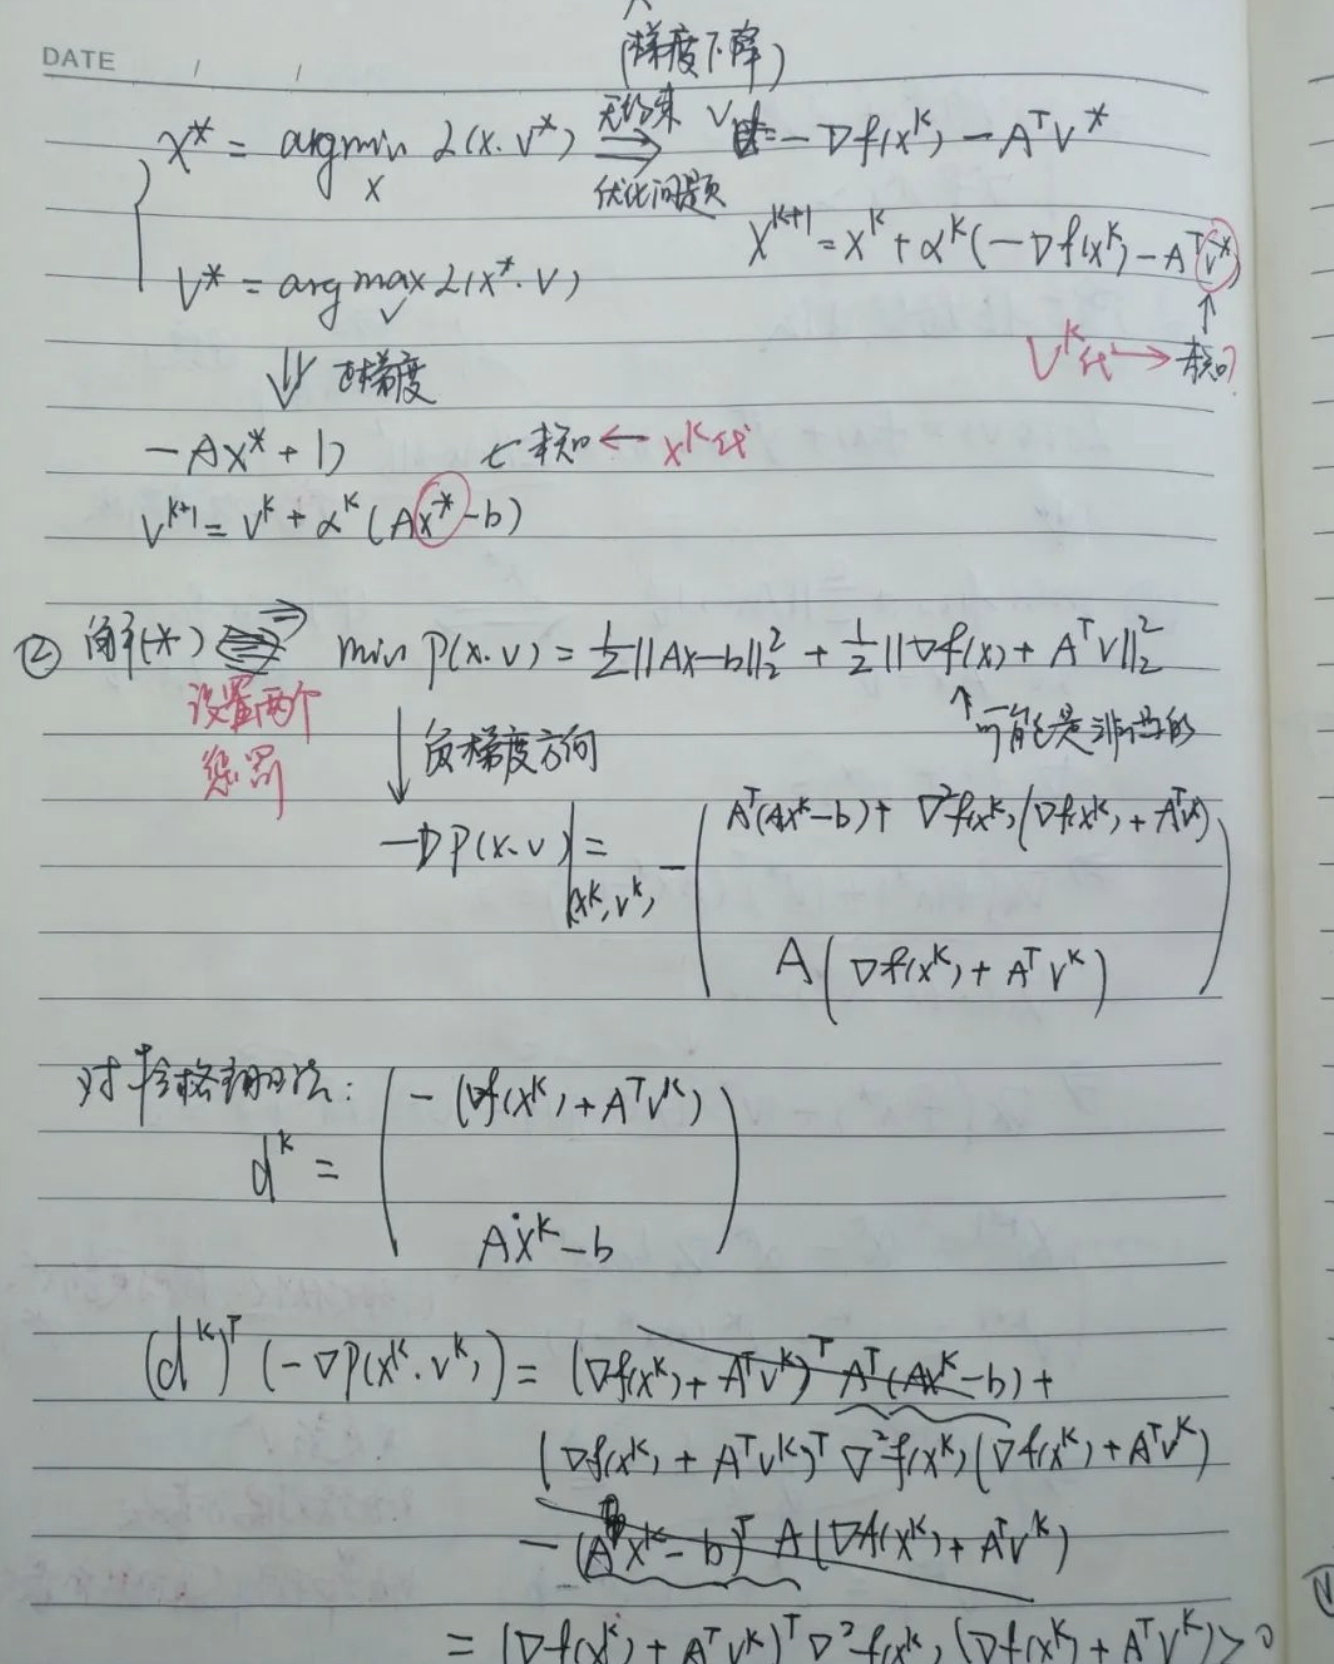 DATE / /
(梯度下降)
x* = argmin L(x, v*) 无约束 ⇒ 优化问题 = -∇f(x^k) - A^T v*
x
x^{k+1} = x^k + α^k(-∇f(x^k) - A^T v*)
v* = argmax L(x*, v)
v
↑
v^k代 → 未知?
⇓ 梯度
-Ax* + b
← 未知 ← x^k代
v^{k+1} = v^k + α^k(Ax* - b)
② 解(*) ⇒ min P(x, v) = 1/2||Ax-b||_2^2 + 1/2||∇f(x) + A^T v||_2^2
设置两个
惩罚
↑ 可能是非凸的
↓ 负梯度方向
-∇P(x, v)|_{(x^k, v^k)} = -( A^T(Ax^k-b) + ∇²f(x^k)(∇f(x^k) + A^T v^k)
A(∇f(x^k) + A^T v^k) )
对拉格朗日法:
d^k = ( -(∇f(x^k) + A^T v^k)
Ax^k - b )
(d^k)^T(-∇P(x^k, v^k)) = (∇f(x^k) + A^T v^k)^T A^T(Ax^k - b) +
(∇f(x^k) + A^T v^k)^T ∇²f(x^k)(∇f(x^k) + A^T v^k)
- (Ax^k - b)^T A(∇f(x^k) + A^T v^k)
= (∇f(x^k) + A^T v^k)^T ∇²f(x^k)(∇f(x^k) + A^T v^k) > 0